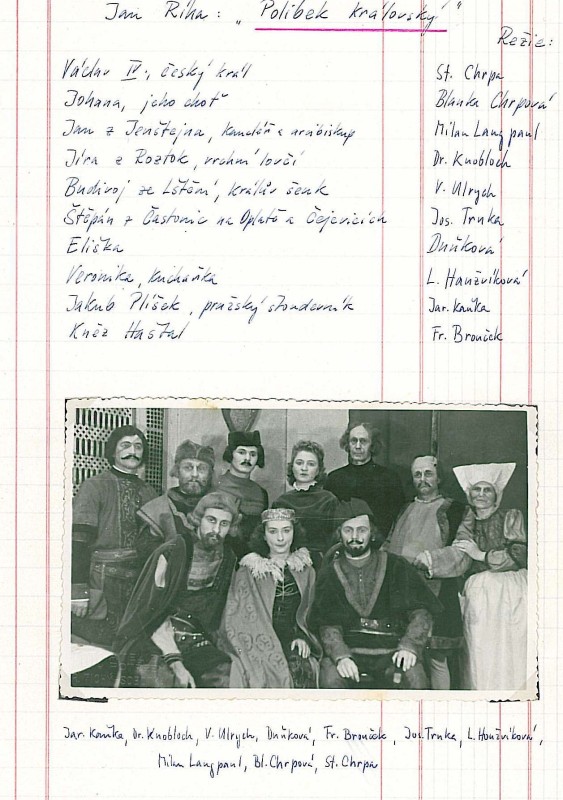 Jan Říha: „Polibek královský"
Režie:
Václav IV., český král St. Chrpa
Johana, jeho choť Blanka Chrpová
Jan z Jenštejna, kancléř a arcibiskup Milan Langpaul
Jíra z Roztok, vrchní lovčí Dr. Knobloch
Budivoj ze Lštění, králův šenk V. Ulrych
Štěpán z Častonic na Oplotě a Čejevicích Jos. Trnka
Eliška Duňková
Veronika, kuchařka L. Houžvíková
Jakub Plíšek, pražský stoudevník Jar. Kaňka
Kněz Haštal Fr. Brouček
Jar. Kaňka, Dr. Knobloch, V. Ulrych, Duňková, Fr. Brouček, Jos. Trnka, L. Houžvíková,
Milan Langpaul, Bl. Chrpová, St. Chrpa